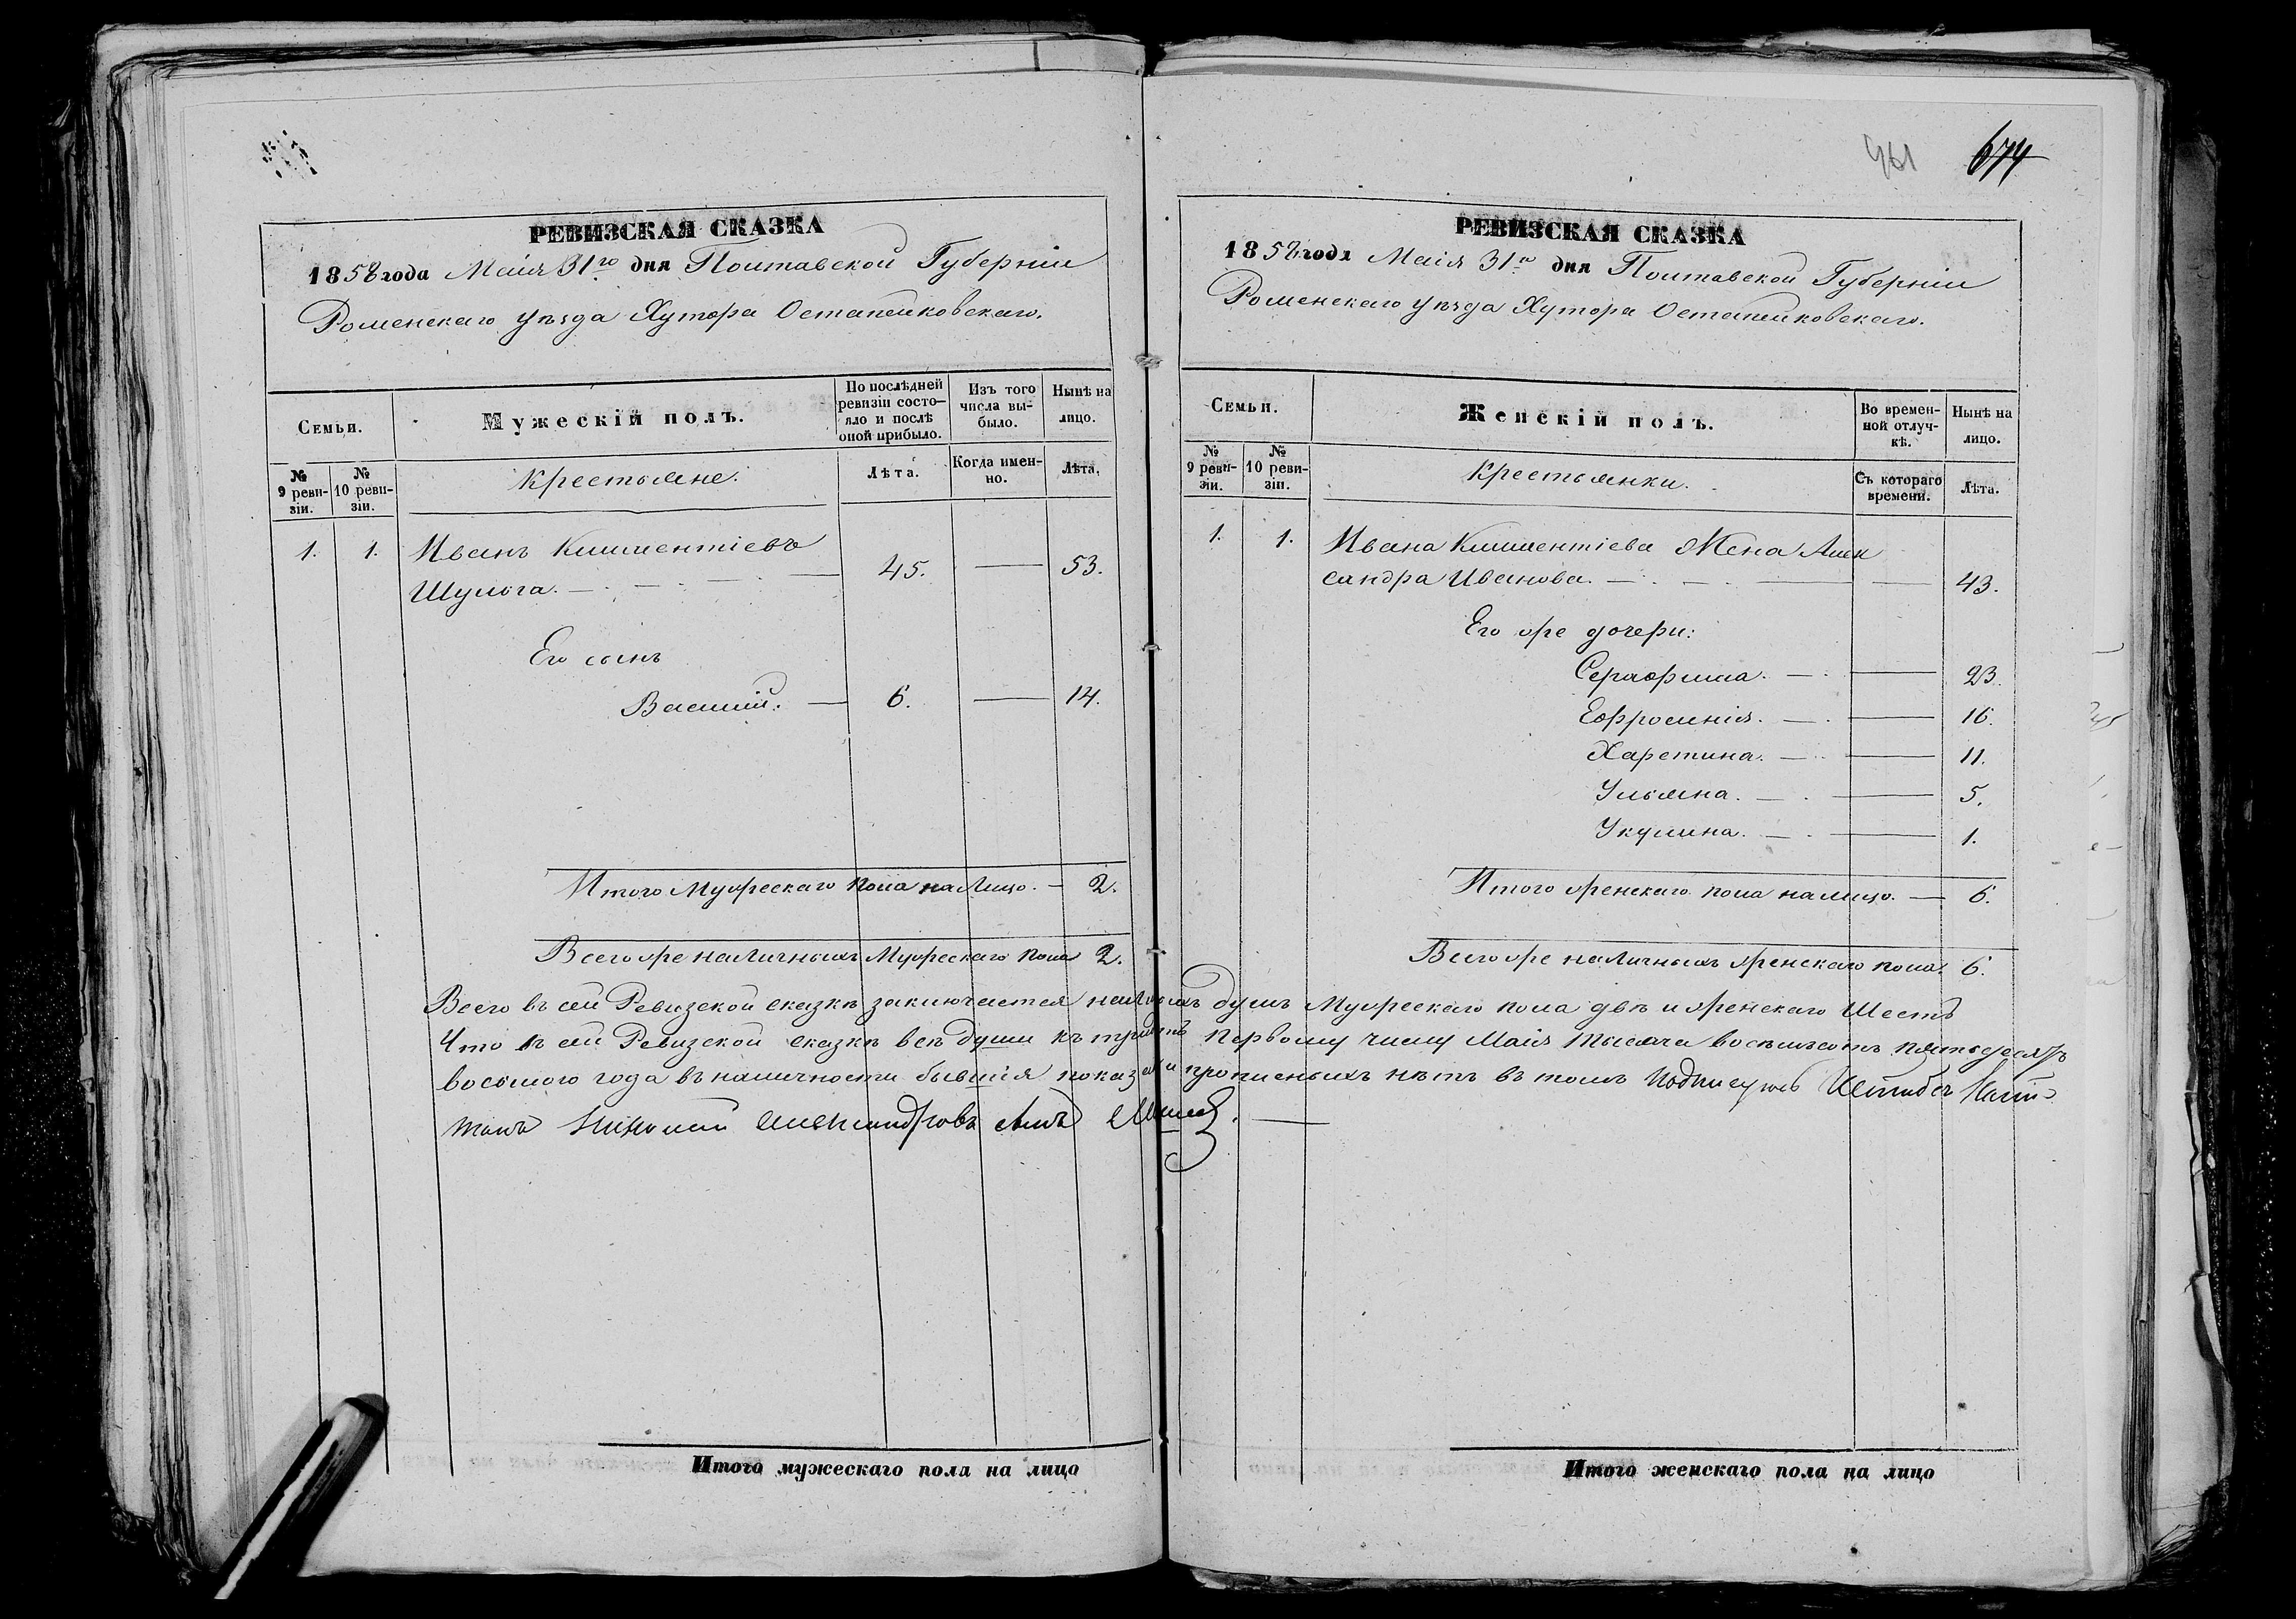 961 674
РЕВИЗСКАЯ СКАЗКА
1858 года Маія 31го дня Полтавской Губерніи
Роменскаго уѣзда Хутора Остапенковскаго.
Семьи.
Мужескій полъ.
По послѣдней ревизіи состояло и послѣ оной прибыло.
Изъ того числа выбыло.
Нынѣ на лицо.
№ 9 ревизіи.
№ 10 ревизіи.
Крестьяне.
Лѣта.
Когда именно.
Лѣта.
1. 1. Иванъ Климентіевъ
Шулога. — 45. — 53.
Его сынъ
Василій. — 6. — 14.
Итого Мужескаго пола на Лицо. — 2.
Всего же наличныхъ Мужескаго пола 2.
РЕВИЗСКАЯ СКАЗКА
1858 года Маія 31го дня Полтавской Губерніи
Роменскаго уѣзда Хутора Остапенковскаго.
Семьи.
Женскій полъ.
Во временной отлучкѣ.
Нынѣ на лицо.
№ 9 ревизіи.
№ 10 ревизіи.
Крестьянки.
Съ котораго времени.
Лѣта.
1. 1. Ивана Климентіева Жена Алек
сандра Иванова. — 43.
Его же дочери:
Серафима. — 23.
Ефросинія. — 16.
Харетина. — 11.
Ульяна. — 5.
Укулина. — 1.
Итого женскаго пола на лицо. — 6.
Всего же наличныхъ женскаго пола. 6.
Всего въ сей Ревизской сказкѣ заключается наличныхъ душъ Мужескаго пола двѣ и женскаго Шесть
Что въ сей Ревизской сказкѣ всѣ души къ тридцать первому числу Маія тысяча восемьсотъ пятьдесятъ
восьмого года въ наличности бывшія показаны и прописныхъ нѣтъ въ томъ подписуюсь Штабсъ Капи-
танъ Николай Александровъ сынъ
Итого мужескаго пола на лицо
Итого женскаго пола на лицо